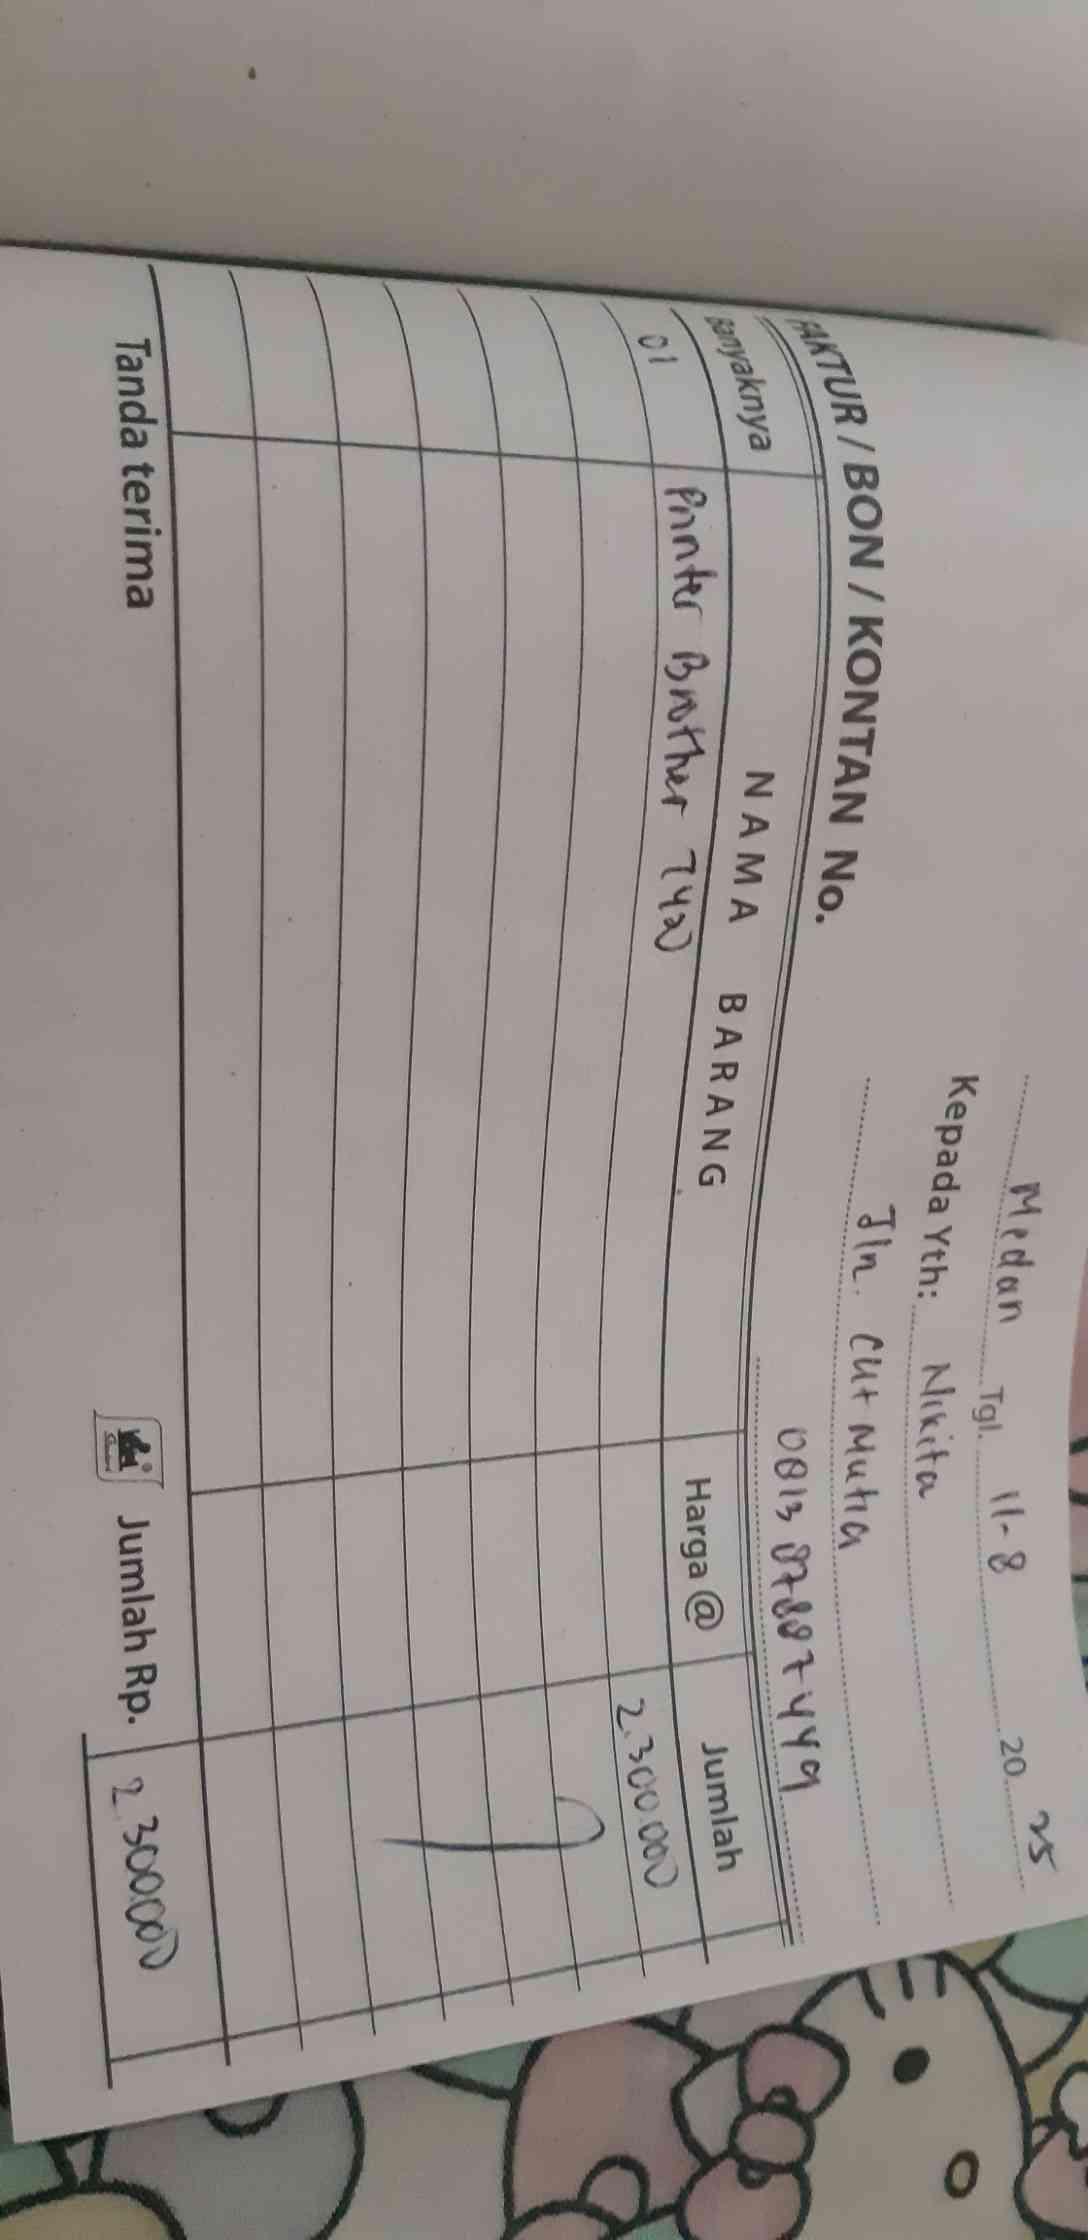 Medan Tgl. 11-8 20 25
Kepada Yth: Nikita
Jln. Cut Mutia
FAKTUR / BON / KONTAN No.
Banyaknya NAMA BARANG Harga @ Jumlah
01 Printer Brother T420 2.300.000
Tanda terima Jumlah Rp. 2.300.000